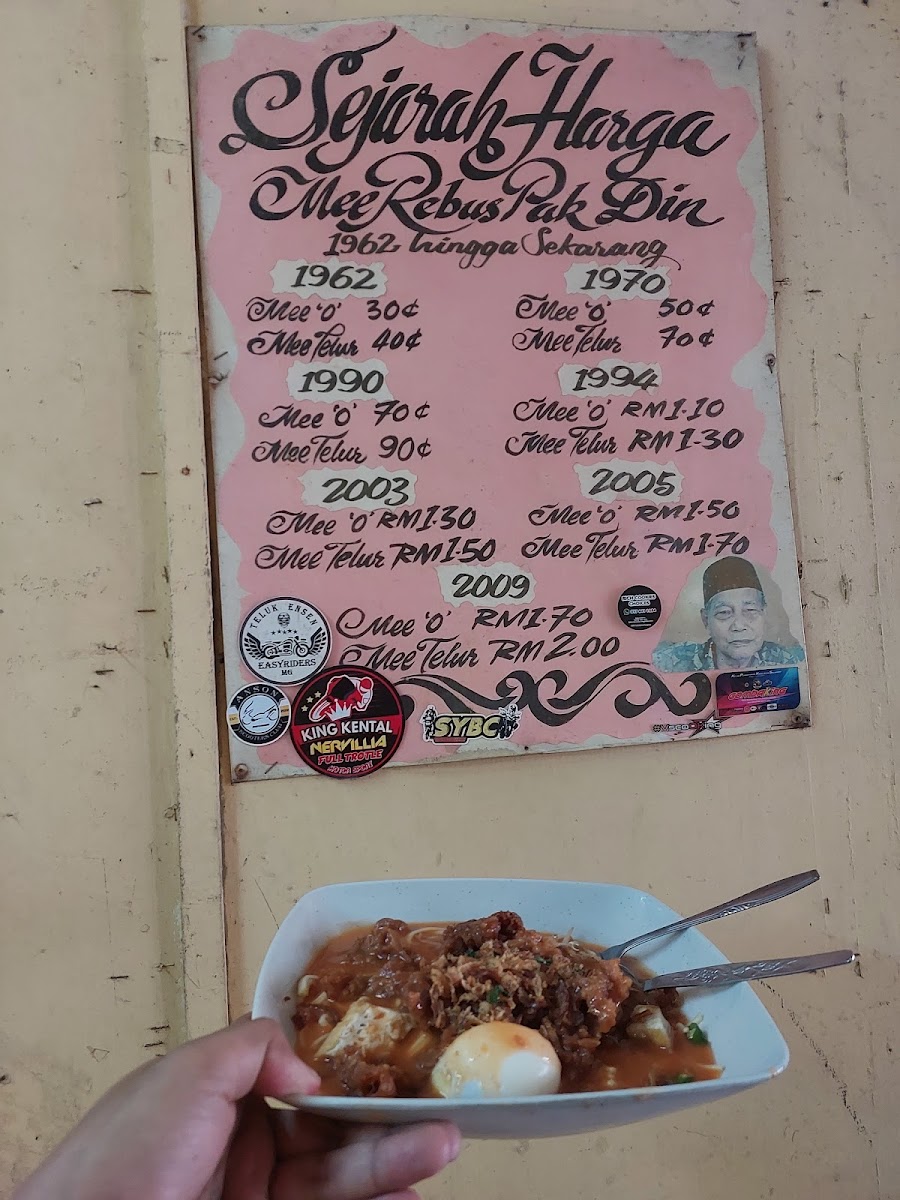 Sejarah Harga
Mee Rebus Pak Din
1962 hingga Sekarang
1962
Mee 'O' 30¢
Mee Telur 40¢
1970
Mee 'O' 50¢
Mee Telur 70¢
1990
Mee 'O' 70¢
Mee Telur 90¢
1994
Mee 'O' RM 1.10
Mee Telur RM 1.30
2003
Mee 'O' RM 1.30
Mee Telur RM 1.50
2005
Mee 'O' RM 1.50
Mee Telur RM 1.70
2009
Mee 'O' RM 1.70
Mee Telur RM 2.00
TELUK ENSEN
EASYRIDERS
M6
KING KENTAL
NERVILLIA
FULL TROTLE
SYBC